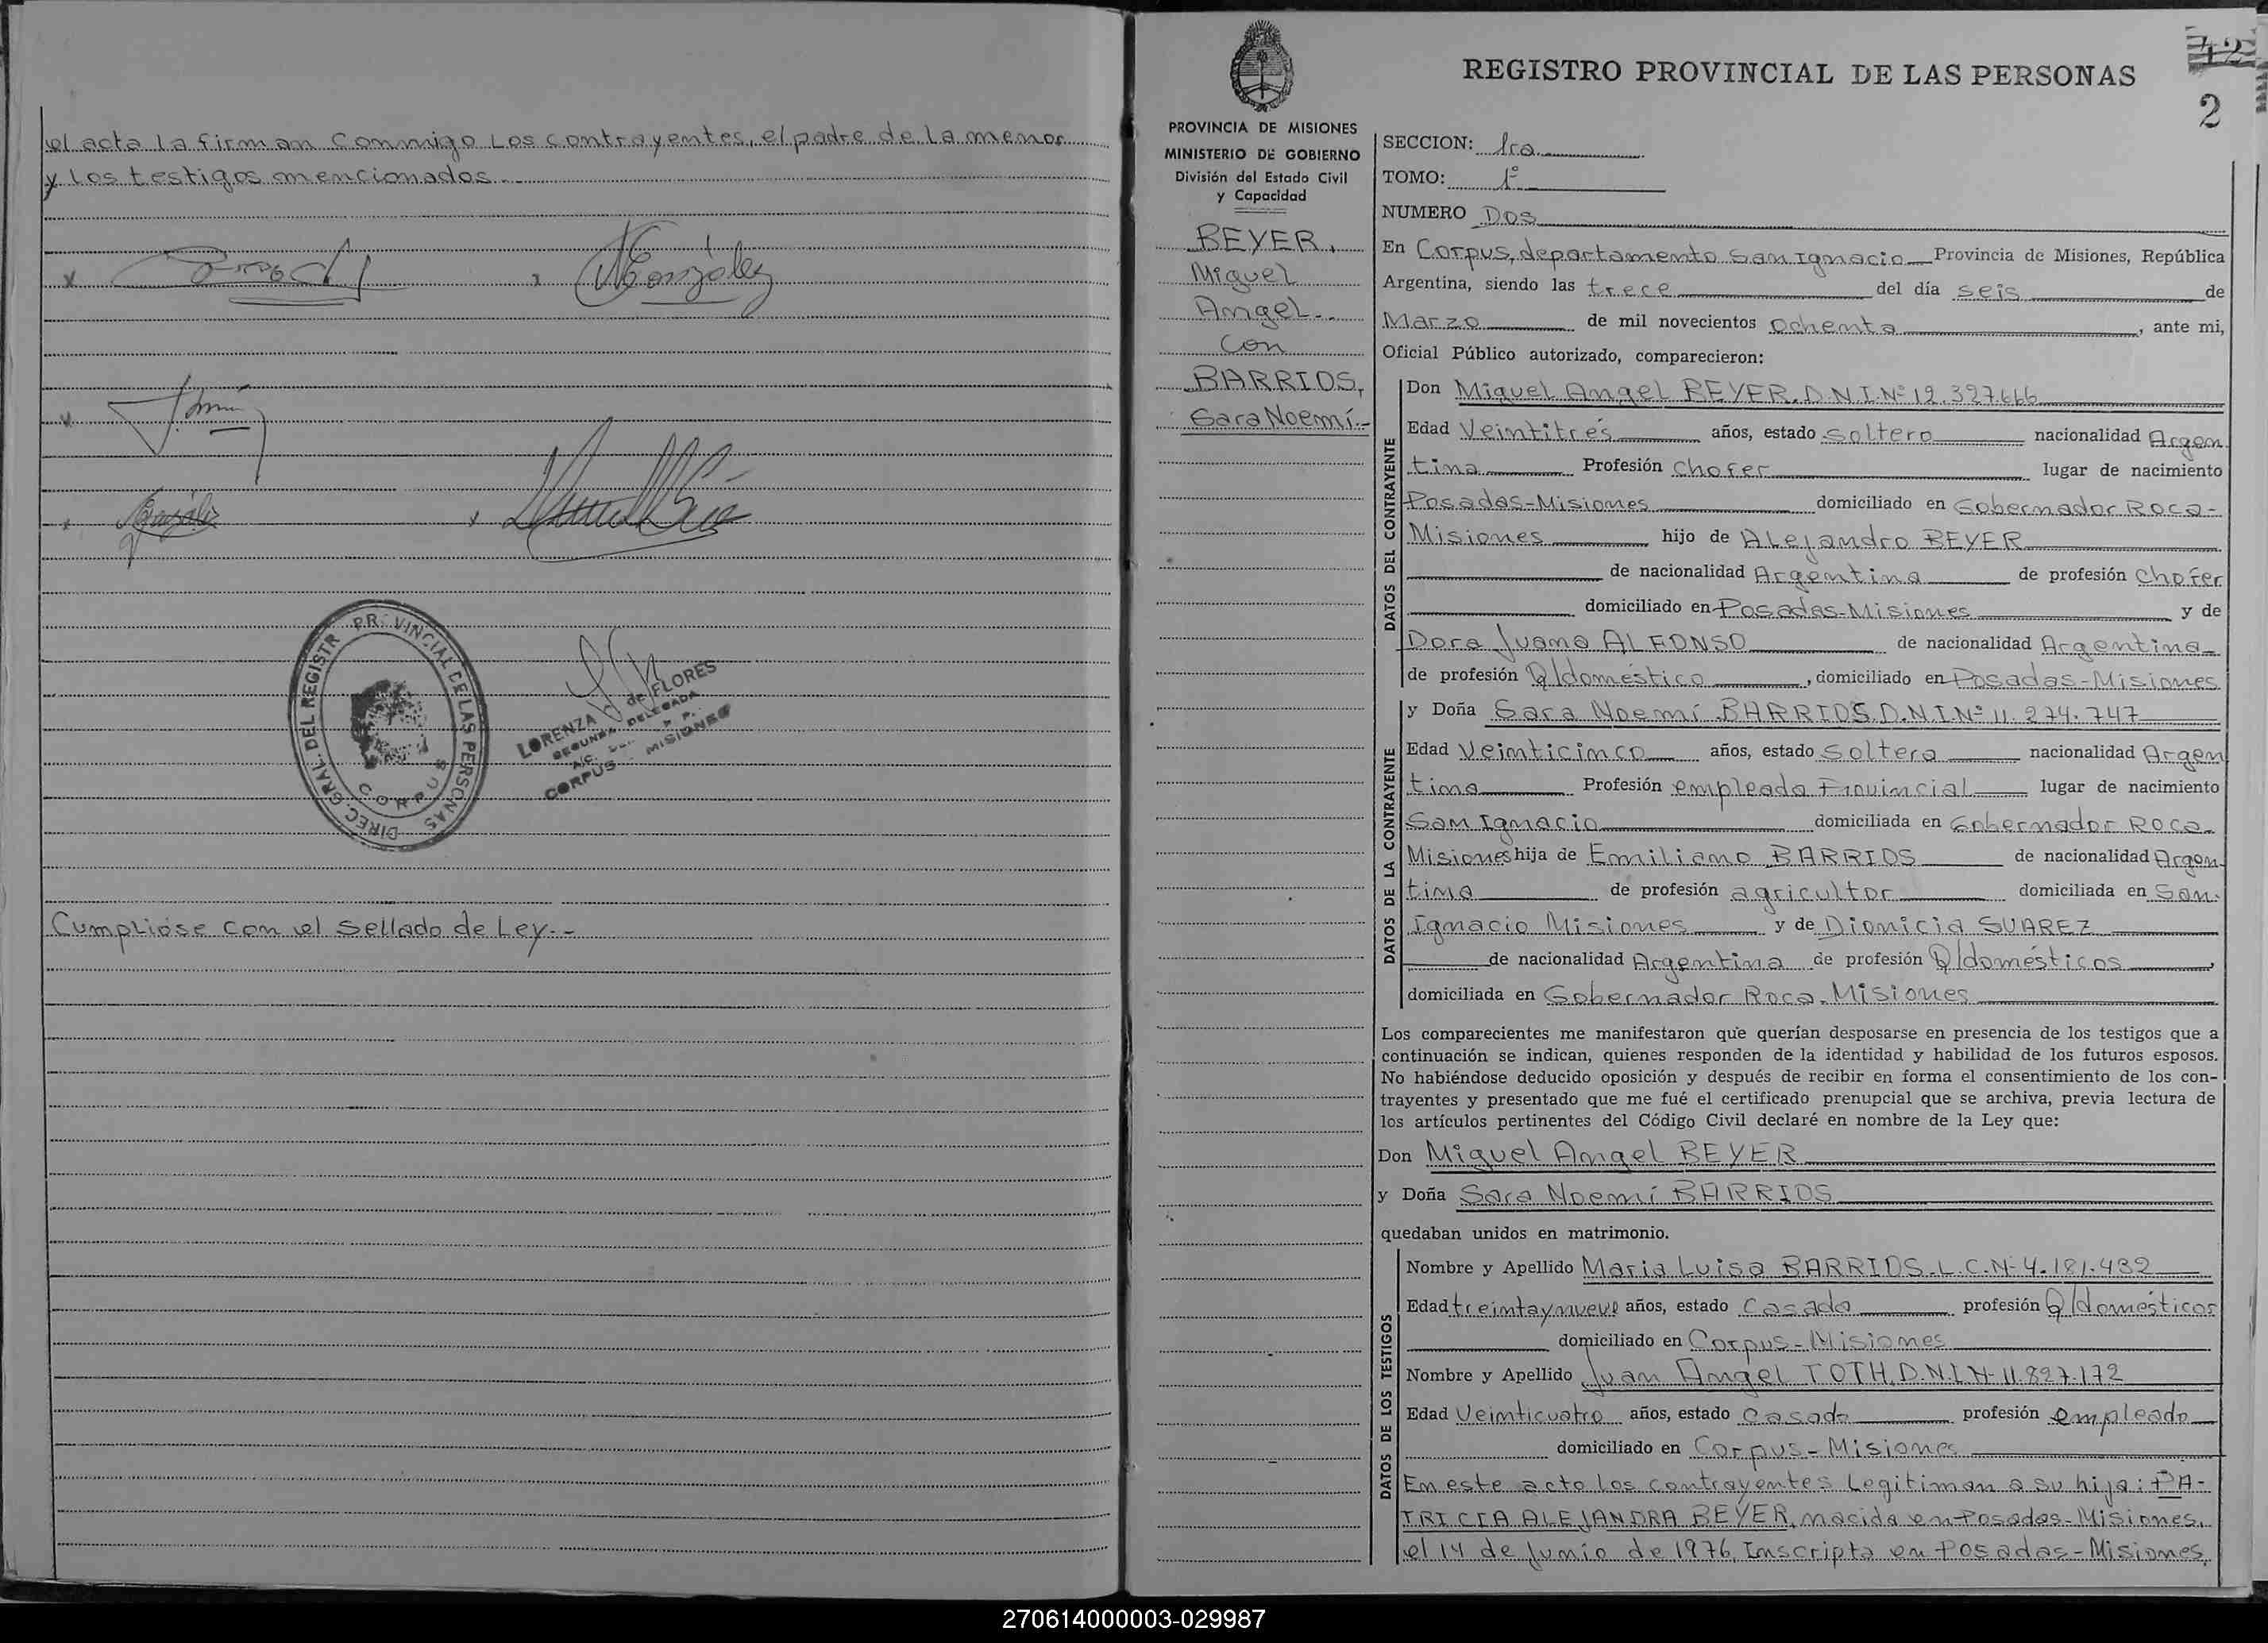 el acta la firman conmigo los contrayentes, el padre de la menor
y los testigos mencionados.-
González
DIREC. GRAL. DEL REGISTR PROVINCIAL DE LAS PERSONAS
CORPUS
LORENZA de FLORES
SEGUNDA DELEGADA
A/C.
CORPUS - MISIONES
Cumplióse con el sellado de Ley.-
REGISTRO PROVINCIAL DE LAS PERSONAS
2
PROVINCIA DE MISIONES
MINISTERIO DE GOBIERNO
División del Estado Civil
y Capacidad
BEYER,
Miguel
Angel.-
con
BARRIOS,
Sara Noemí.-
SECCION: 1ra.
TOMO: 1º
NUMERO DOS
En Corpus, departamento San Ignacio Provincia de Misiones, República
Argentina, siendo las trece del día seis de
Marzo de mil novecientos ochenta, ante mi,
Oficial Público autorizado, comparecieron:
DATOS DEL CONTRAYENTE
Don Miguel Angel BEYER. D.N.I.Nº 12.327.666
Edad Veintitrés años, estado soltero nacionalidad Argen
tina Profesión chofer lugar de nacimiento
Posadas-Misiones domiciliado en Gobernador Roca-
Misiones hijo de Alejandro BEYER
de nacionalidad Argentina de profesión chofer
domiciliado en Posadas-Misiones y de
Dora Juana ALFONSO de nacionalidad Argentina
de profesión Q/doméstico, domiciliado en Posadas-Misiones
DATOS DE LA CONTRAYENTE
y Doña Sara Noemí BARRIOS. D.N.I.Nº 11.274.747
Edad Veinticinco años, estado soltera nacionalidad Argen
tina Profesión empleada Provincial lugar de nacimiento
San Ignacio domiciliada en Gobernador Roca-
Misiones hija de Emiliano BARRIOS de nacionalidad Argen
tina de profesión agricultor domiciliada en San
Ignacio Misiones y de Dionicia SUAREZ
de nacionalidad Argentina de profesión Q/domésticos,
domiciliada en Gobernador Roca. Misiones
Los comparecientes me manifestaron que querían desposarse en presencia de los testigos que a
continuación se indican, quienes responden de la identidad y habilidad de los futuros esposos.
No habiéndose deducido oposición y después de recibir en forma el consentimiento de los con-
trayentes y presentado que me fué el certificado prenupcial que se archiva, previa lectura de
los artículos pertinentes del Código Civil declaré en nombre de la Ley que:
Don Miguel Angel BEYER
y Doña Sara Noemí BARRIOS
quedaban unidos en matrimonio.
DATOS DE LOS TESTIGOS
Nombre y Apellido Maria Luisa BARRIOS.L.C.Nº 4.181.432
Edad treintaynueve años, estado Casada profesión Q/domésticos
domiciliado en Corpus-Misiones
Nombre y Apellido Juan Angel TOTH. D.N.I.Nº 11.827.172
Edad Veinticuatro años, estado casado profesión empleado
domiciliado en Corpus-Misiones
En este acto los contrayentes Legitiman a su hija: PA-
TRICIA ALEJANDRA BEYER, nacida en Posadas-Misiones,
el 14 de Junio de 1976, Inscripta en Posadas-Misiones,
270614000003-029987